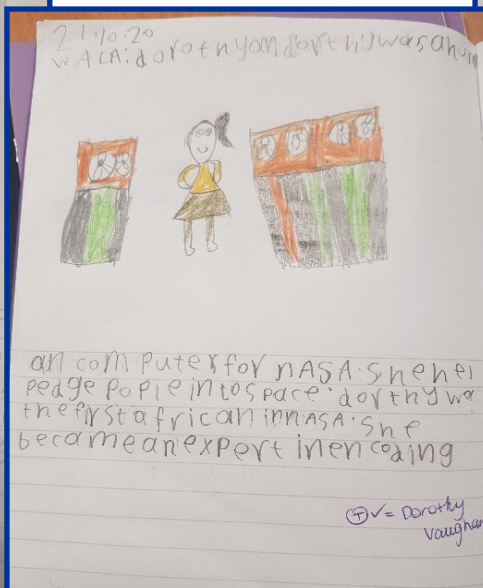 21.10.20
WALA: dorothyom dorthy was a hum
an computer for nASA. She hel
pedge pople into space. dorthy wa
the first african in nASA. She
became an expert in encoding
T ✓ = Dorothy
Vaughan